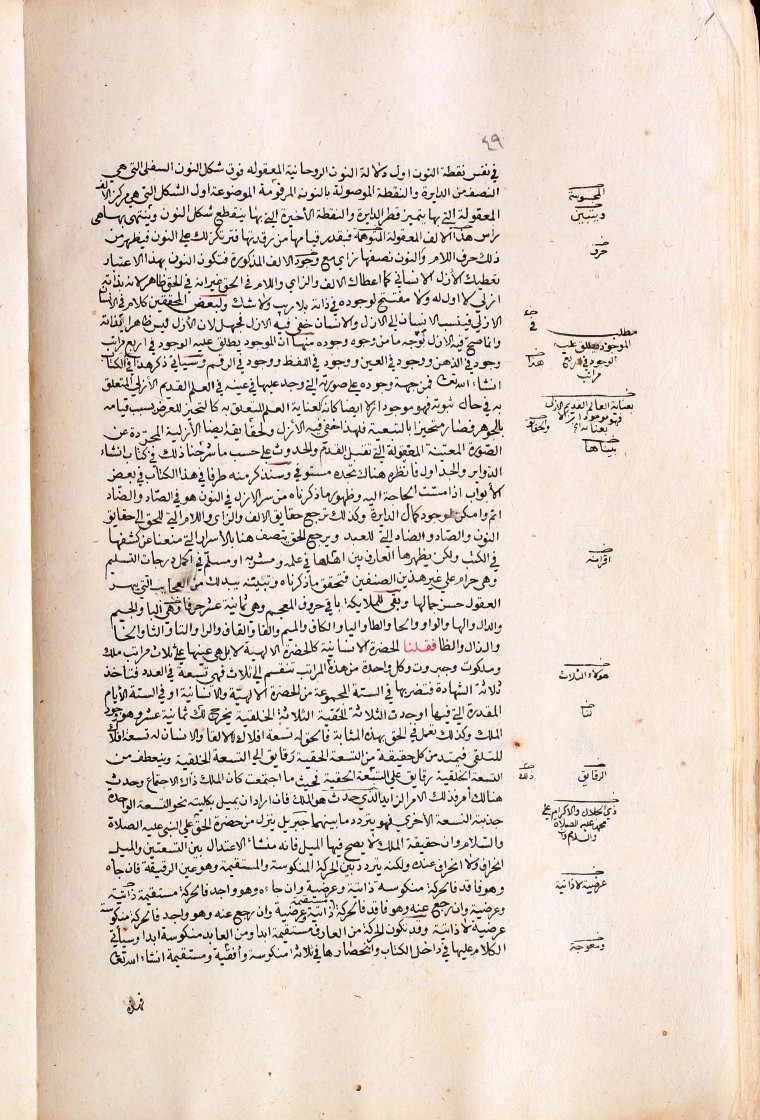 ٤٩
في نفس نقطة النون اول دلالة النون الروحانية المعقوله فوق شكل النون السفلى التي هي
النصف من الدايرة والنقطة الموصولة بالنون المرقومة الموضوعة اول الشكل التي هي مركز الالف
المعقولة التي بها يتميز قطر الدايرة والنقطة الأخيرة التي بها ينقطع شكل النون وينتهى بها هي
راس هذا الالف المعقولة المتوهمة فيقدر قيامها من رقدتها فترتكز لك على النون فيظهر من
ذلك حرف اللام والنون نصفها زاي مع وجود الالف المذكورة فتكون النون بهذا الاعتبار
تعطيك الأزل الانساني كما اعطاك الالف والزاي واللام في الحق غير انه في الحق ظاهر لانه بذاته
ازلي لا اول له ولا مفتتح لوجوده في ذاته بلا ريب ولا شك ولبعض المحققين كلام في الانسان
الازلي فينسب الانسان الى الازل والانسان خفي فيه الازل فجهل لان الأزل ليس ظاهرا في ذاته
وانما صح فيه الازل لوجه ما من وجوه وجوده منها ان الموجود يطلق عليه الوجود في اربع مراتب
وجود في الذهن ووجود في العين ووجود في اللفظ ووجود في الرقم وسياتي ذكر هذا في الكتاب
انشاء الله تعالى فمن جهة وجوده على صورته التي وجد عليها في عينه في العلم القديم الأزلي المتعلق
به في حال ثبوته فهو موجود ازلا ايضا كانه لعناية العلم المتعلق به كالتحيز للعرض بسبب قيامه
بالجوهر فصار متحيزا بالتبعية فلهذا خفي فيه الأزل ولحقايقه ايضا الأزلية المجردة عن
الصورة المعينة المعقولة التي تقبل القدم والحدوث على حسب ما شرحنا ذلك في كتاب انشاء
الدواير والجداول فانظره هناك تجده مستوفى وسنذكر منه طرفا في هذا الكتاب في بعض
الأبواب اذا مست الحاجة اليه وظهور ما ذكرناه من سر الأزل في النون هو في الصاد والضاد
اتم وامكن لوجود كمال الدايرة وكذلك ترجع حقايق الالف والزاي واللام التي للحق الى حقايق
النون والصاد والضاد التي للعبد ويرجع الحق يتصف هنا بالأسرار التي منعنا عن كشفها
في الكتب ولكن يظهرها العارف بين اهلها في علمه ومشربه او مسلم في اكمل درجات التسليم
وهي حرام على غير هذين الصنفين فتحقق ما ذكرناه وتبينه يبد لك من العجايب التي يبهر
العقول حسن جمالها وبقي للملايكة باقي حروف المعجم وهي ثمانية عشر حرفا وهي البا والجيم
والدال والها والواو والحا والطا واليا والكاف والميم والفا والقاف والرا والتا والثا والخا
والذال والظا فقلنا الحضرة الانسانية كالحضرة الالهية لا بل هي عينها على ثلاث مراتب ملك
وملكوت وجبروت وكل واحدة من هذه المراتب تنقسم الى ثلاث فهي تسعة في العدد فتاخذ
ثلاثة الشهادة فتضربها في الستة المجموعة من الحضرة الالهية والانسانية او في الستة الأيام
المقدرة التي فيها اوجدت الثلاثة الحقية الثلاثة الخلقية يخرج لك ثمانية عشر وهو وجود
الملك وكذلك تعمل في الحق بهذه المثابة فالحق له تسعة افلاك للالقا والانسان له تسعة افلاك
للتلقي فيمتد من كل حقيقة من التسعة الحقية رقايق الى التسعة الخلقية وينعطف من
التسعة الخلقية رقايق على التسعة الحقية فحيث ما اجتمعت كان الملك ذلك الاجتماع وحدث
هنالك فذلك الامر الزايد الذي حدث هو الملك فان اراد ان يميل بكليته نحو التسعة الواحدة
جذبته التسعة الأخرى فهو يتردد ما بينهما جبريل ينزل من حضرة الحق على النبي عليه الصلاة
والسلام وان حقيقة الملك لا يصح فيها الميل فانه منشاء الاعتدال بين التسعتين والميل
انحراف ولا انحراف عنده ولكنه يتردد بين الحركة المنكوسة والمستقيمة وهو عين الرقيقة فان جاه
وهو فاقد فالحركة منكوسة ذاتية وعرضية وان جاءه وهو واجد فالحركة مستقيمة ذاتية
وعرضية وان رجع عنه وهو فاقد فالحركة مستقيمة ذاتية وعرضية وان رجع عنه وهو واجد فالحركة منكوسة
عرضية لا ذاتية وقد تكون الحركة من العارف مستقيمة ابدا ومن العابد منكوسة ابدا وسياتي
الكلام عليها في داخل الكتاب وانحصارها في ثلاثة منكوسة وافقية ومستقيمة انشاء الله تعالى
المحسوسة
ويتبين
حرف
في
مطلب
الموجود يطلق عليه
الوجود في اربع
مراتب
هذا
بعناية العالم القديم الازلي
بيناها
هولاء الثلاث
الرقايق
ذلك
ذي الجلال والاكرام على
محمد عليه الصلاة
والسلام
عرضية لا ذاتية
ومعوجة